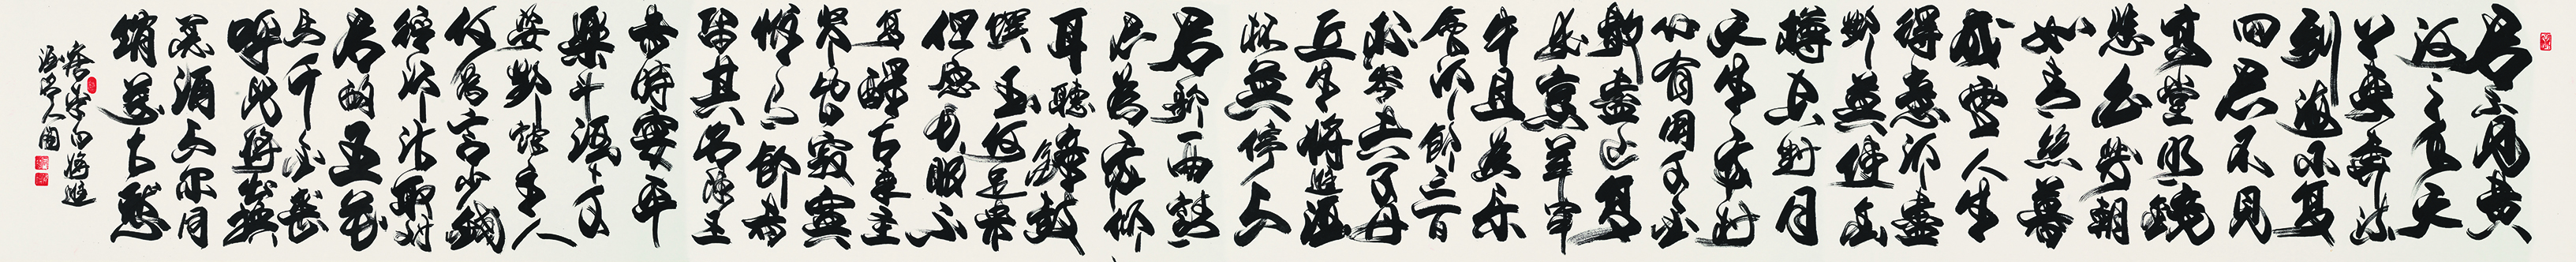 君不見黄
河之水天
上來奔流
到海不復
回君不見
高堂明鏡
悲白髮朝
如青絲暮
成雪人生
得意須盡
歡莫使金
樽空對月
天生我材
必有用千金
散盡還復
來烹羊宰
牛且為樂
會須一飲三百
杯岑夫子丹
丘生將進酒
杯莫停与
君歌一曲請
君為我傾
耳聽鐘鼓
饌玉何足貴
但願長醉不
復醒古來聖
賢皆寂寞
惟有飲者
留其名陳王
昔時宴平
樂斗酒十千
恣歡謔主人
何為言少錢
徑須沽取對
君酌五花
馬千金裘
呼兒將出換
美酒与爾同
銷萬古愁
唐李白將進
酒